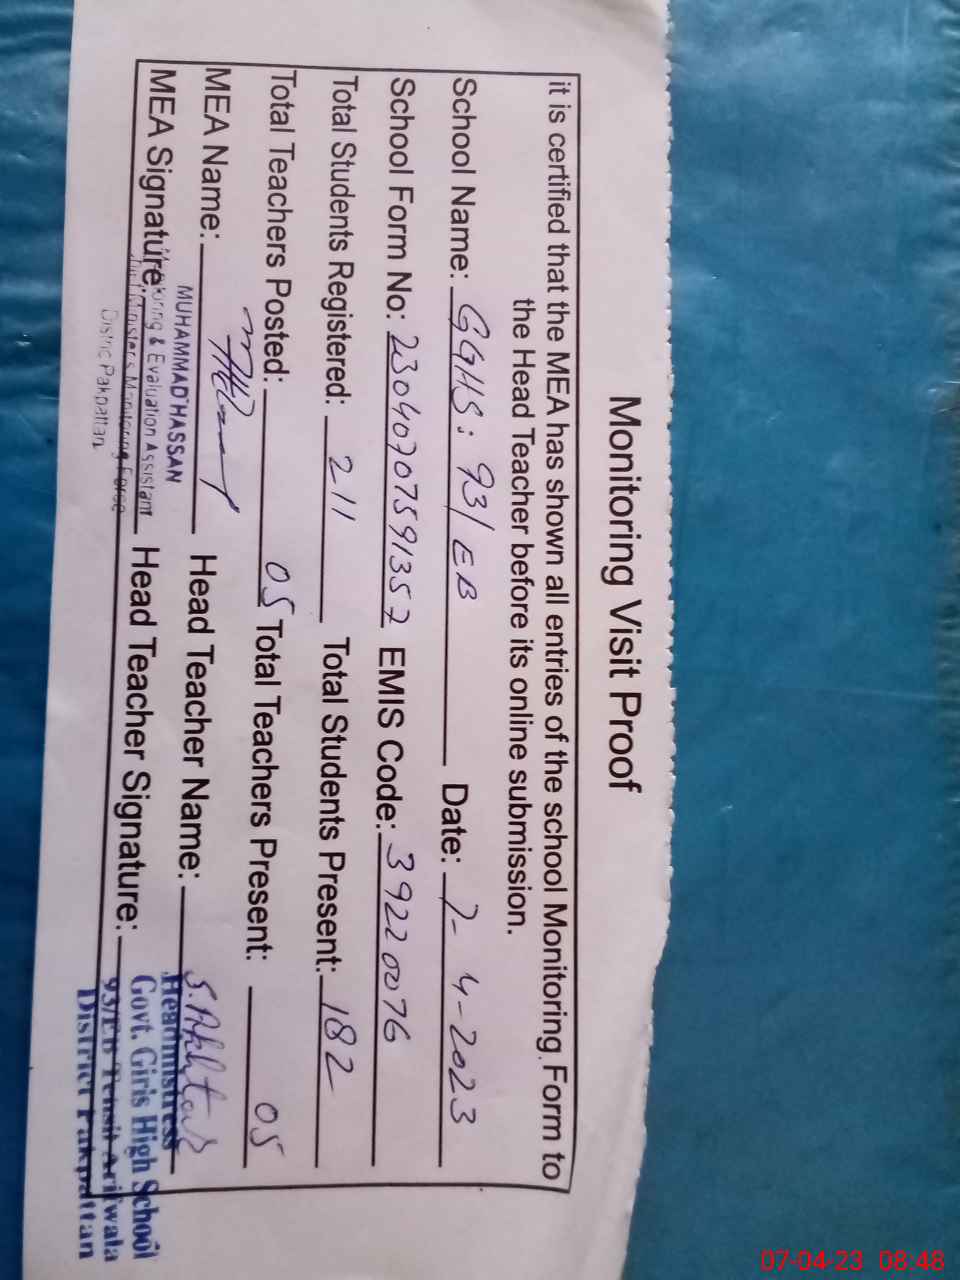 Monitoring Visit Proof
it is certified that the MEA has shown all entries of the school Monitoring Form to
the Head Teacher before its online submission.
School Name: GGHS: 93/EB Date: 7-4-2023
School Form No: 23040707591357 EMIS Code: 39220076
Total Students Registered: 211 Total Students Present: 182
Total Teachers Posted: 05 Total Teachers Present: 05
MEA Name: Head Teacher Name: S.Akhtar
MUHAMMAD HASSAN
MEA Signature: Head Teacher Signature:
& Evaluation Assistant
Minister's Monitoring Force
Distric Pakpattan
Headmistress
Govt. Girls High School
93/EB Tehsil Arifwala
District Pakpattan
07-04-23 08:48